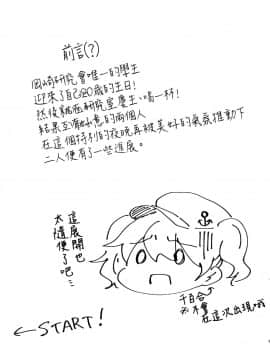 前言(?)
岡崎研究會唯一的學生
迎來了自己20歲的生日!
然後就在研究室慶生、喝一杯!
結果至酒酣意的兩個人
在這個特別的夜晚再被美好的氣氛推動下
二人便有了一些進展。
這展開也
太隨便了吧…
千百合
必不會
在這次出現哦
←START!